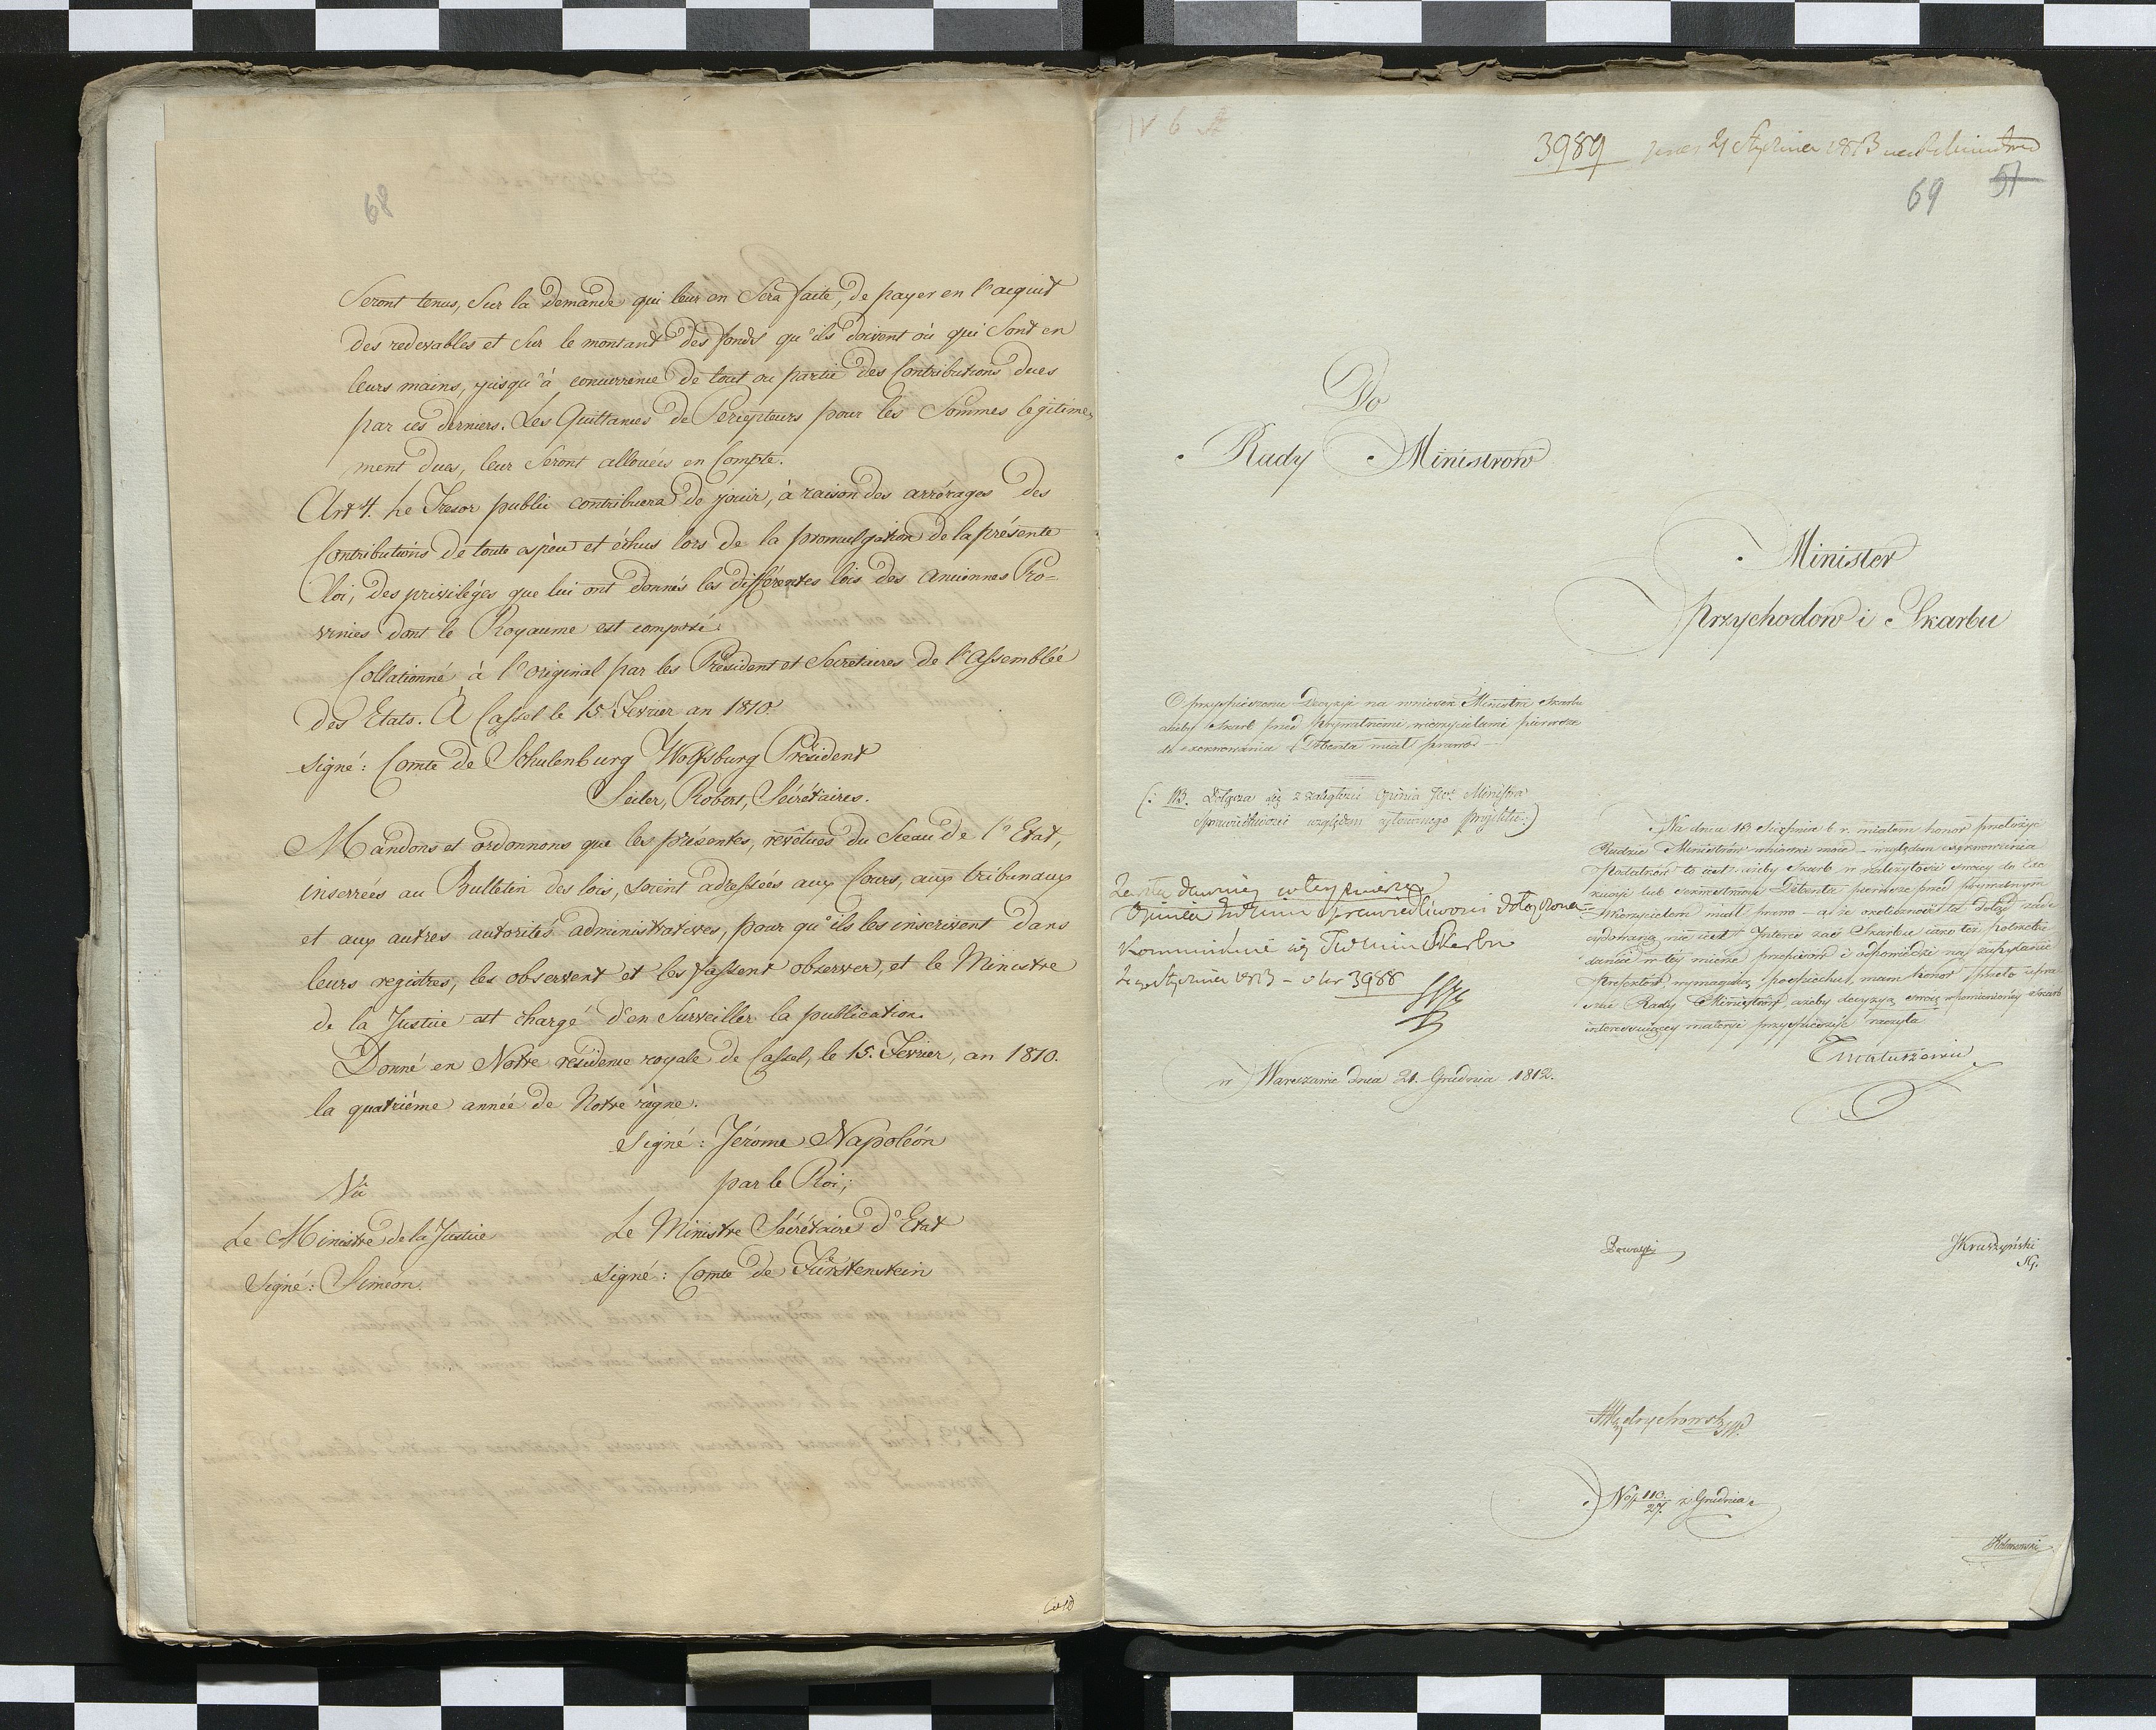 68
Seront tenus, Sur la Demande qui leur en Sera faite, de payer en l'acquit
des redevables et Sur le montant des fonds qu'ils doivent où qui Sont en
leurs mains, jusqu'à concurrence de tout ou partie des Contributions dues
par ces derniers. Les Quittances de Percepteurs pour les Sommes legitime,
ment dues, leur Seront allouées en Compte.
Art 4. Le Tresor public contribuera de jouir, à raison des arrérages des
Contributions de toute espèce et échus lors de la promulgation de la présente
loi, des privilèges que lui ont donnés les différentes lois des anciennes Pro=
vinces dont le Royaume est composé.
Collationné à l'original par les Président et Secretaires de l'Assemblée
des Etats. A Cassel le 15. Fevrier an 1810.
signé: Comte de Schulenburg Wolfsburg Président
Seiler, Robert, Sécrétaires.
Mandons et ordonnons que les présentes, revêtues du Sceau de l'Etat,
inserrées au Bulletin des lois, soient adressées aux Cours, aux tribunaux
et aux autres autorités administratives, pour qu'ils les inscrivent dans
leurs registres, les observent et les fassent observer, et le Ministre
de la Justice est chargé d'en Surveiller la publication.
Donné en Notre résidence royale de Cassel, le 15. Fevrier, an 1810.
la quatriéme année de Notre règne.
signé: Jérome Napoléon
Vû par le Roi;
Le Ministre de la Justice Le Ministre Sécrétaire d'Etat
Signé: Siméon. signé: Comte de Fürstenstein
3989 21 Stycznia 1813
69 51
Do
Rady Ministrow
Minister
Przychodow i Skarbu
O przyspieszenie Decyzyi na wniosek Ministra Skarbu
ażeby Skarb przed Prywatnemi wierzycielami pierwsze
do exekwowania Debenta miał prawo
(: NB. Dołącza się z załączeń Opinia JW. Ministra
Sprawiedliwości względem cytowanego projektu:)
Na dniu 18 Sierpnia b. r. miałem honor przełożyć
Radzie Ministrów wniosek moie względem exekwowania
Podatków to iest: ażeby Skarb w należytości swoiey do Exe
kucyi lub Sekwestracyi Debenta pierwsze przed prywatnym
Wierzycielem miał prawo — a że okoliczność ta dotąd zade
cydowaną nie iest Interes zaś Skarbu iako też potrzeba
dania w tey mierze przepisów i odpowiedzi na zapytania
Prefektów wymagają pospiechu, mam honor przeto upra
szać Rady Ministrów ażeby decyzyą swoią wspomnioney Skarb
interesuiącey materyi przyspieszyć raczyła
dawniey w tey mierze
Opinia Sprawiedliwości dołączona
Kommunikuie się Skarbu
Stycznia 1813 — 3988
T Matuszewic
w Warszawie dnia 21. Grudnia 1812.
JKruszyński
Wędrychowski
No 110/27 z Grudnia